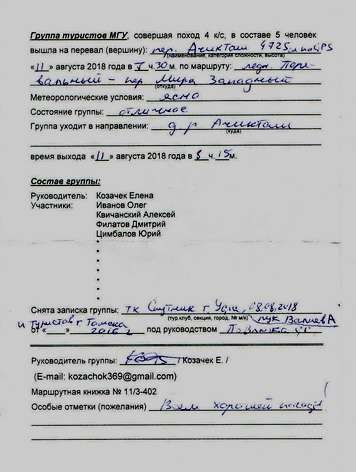 Группа туристов МГУ, совершая поход 4 к/с, в составе 5 человек
вышла на перевал (вершину): пер. Ачикташ 4725 м по GPS
(наименование, категория сложности, высота)
«11» августа 2018 года в ч 30 м. по маршруту: ледн.
вальный – пер Мира Западный
(откуда)
Метеорологические условия: ясно
Состояние группы: отличное
Группа уходит в направлении: д р Ачикташ
(куда)
время выхода «11» августа 2018 года в 8 ч 15 м.
Состав группы:
Руководитель: Козачек Елена
Участники: Иванов Олег
Квичанский Алексей
Филатов Дмитрий
Цимбалов Юрий
Снята записка группы: тк Спутник г Уфа, 08.08.2018
(тур.клуб, секция, город, № м/к) рук Валиев А
и туристов г Томска
от «___» 2016 г. под руководством
Руководитель группы: / Козачек Е. /
(E-mail: kozachok369@gmail.com)
Маршрутная книжка № 11/3-402
Особые отметки (пожелания) Всем хорошей погоды!